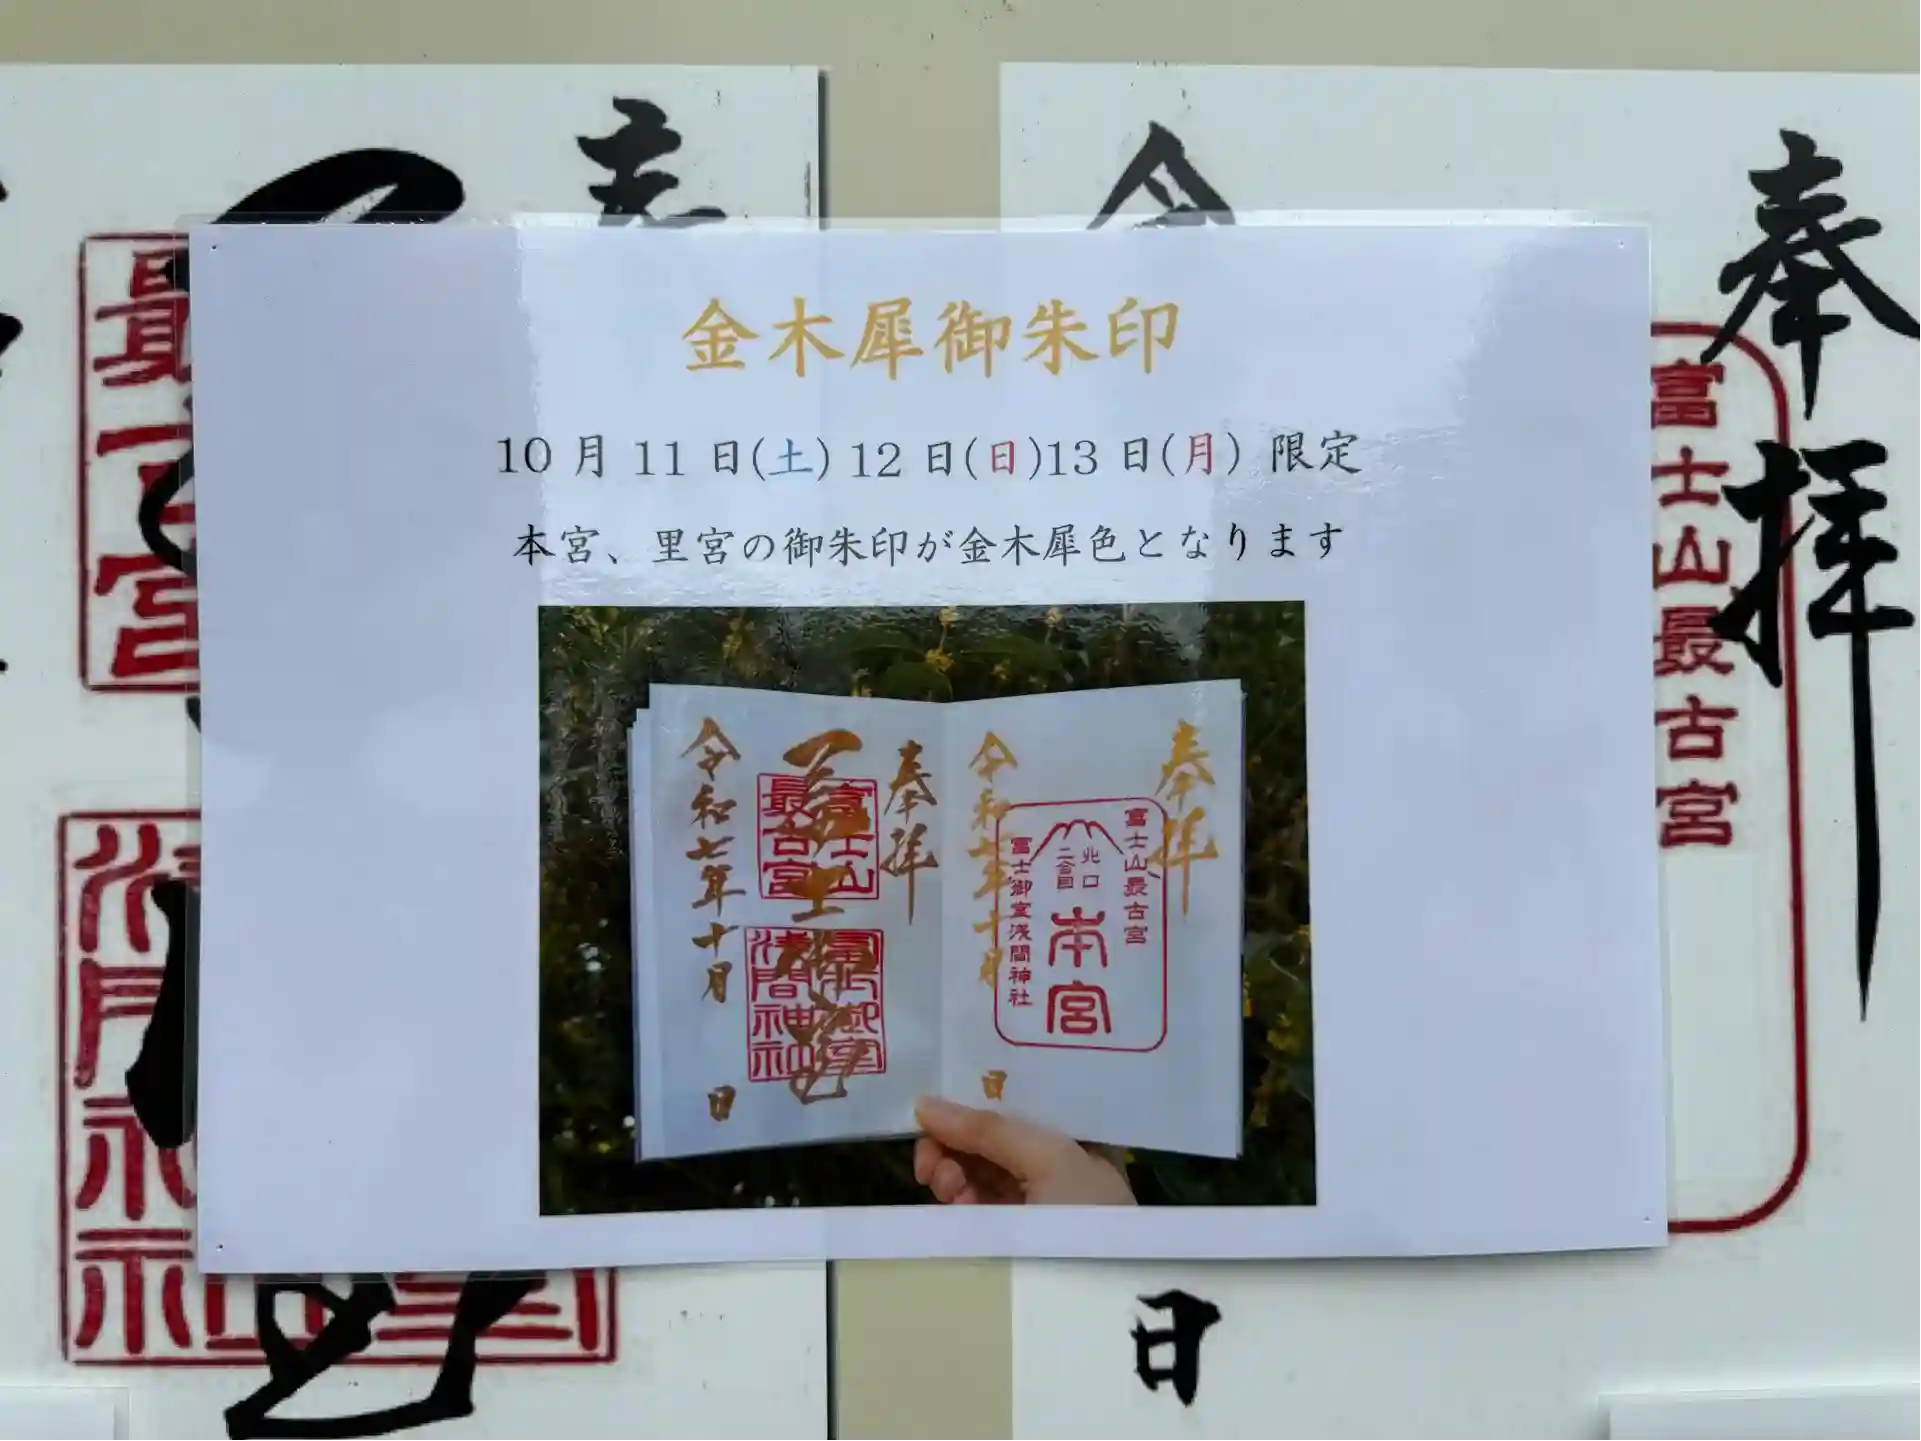 金木犀御朱印
10月11日(土)12日(日)13日(月)限定
本宮、里宮の御朱印が金木犀色となります
奉拝
富士山
最古宮
浅間神社
令和七年十月 日
奉拝
富士山最古宮
北口
二合目
本宮
富士御室浅間神社
令和七年十月 日
奉拝
富士山最古宮
令
日
最古宮